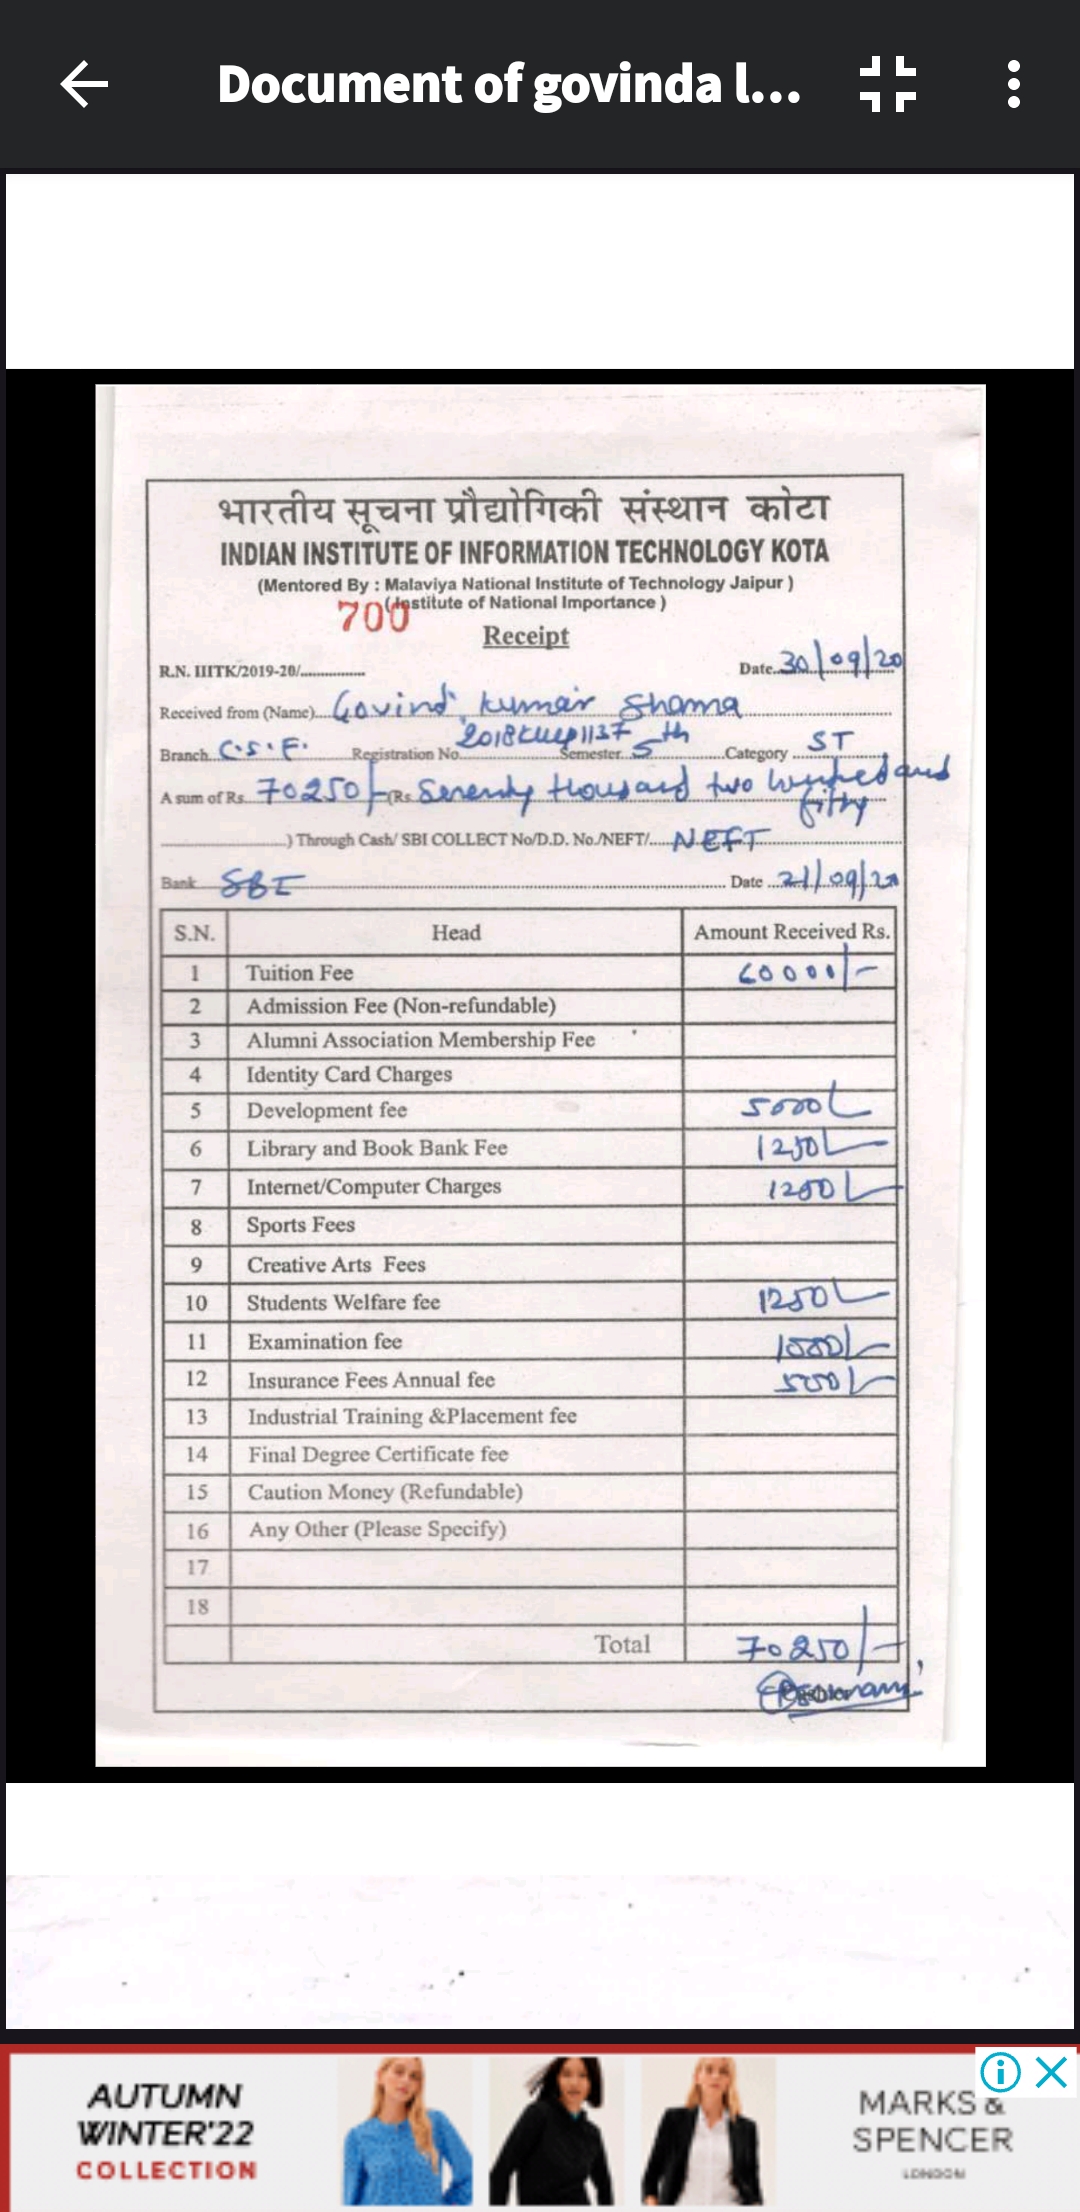 Document of govinda l...
भारतीय सूचना प्रौद्योगिकी संस्थान कोटा
INDIAN INSTITUTE OF INFORMATION TECHNOLOGY KOTA
(Mentored By : Malaviya National Institute of Technology Jaipur )
700 (Institute of National Importance )
Receipt
R.N. IIITK/2019-20/............... Date..30/09/20
Received from (Name)... Govind kumar Sharma
Branch. C.S.E. Registration No. Semester 5th Category ST
A sum of Rs. 70250/- (Rs. Seventy thousand two hundred and
fifty
) Through Cash/ SBI COLLECT No/D.D. No./NEFT/.....NEFT
Bank SBI Date 21/09/20
S.N. Head Amount Received Rs.
1 Tuition Fee 60000/-
2 Admission Fee (Non-refundable)
3 Alumni Association Membership Fee
4 Identity Card Charges
5 Development fee 5000/-
6 Library and Book Bank Fee 1250/-
7 Internet/Computer Charges 1250/-
8 Sports Fees
9 Creative Arts Fees
10 Students Welfare fee 1250/-
11 Examination fee 1000/-
12 Insurance Fees Annual fee 500/-
13 Industrial Training &Placement fee
14 Final Degree Certificate fee
15 Caution Money (Refundable)
16 Any Other (Please Specify)
17
18
Total 70250/-
AUTUMN
WINTER'22
COLLECTION
MARKS &
SPENCER
LONDON